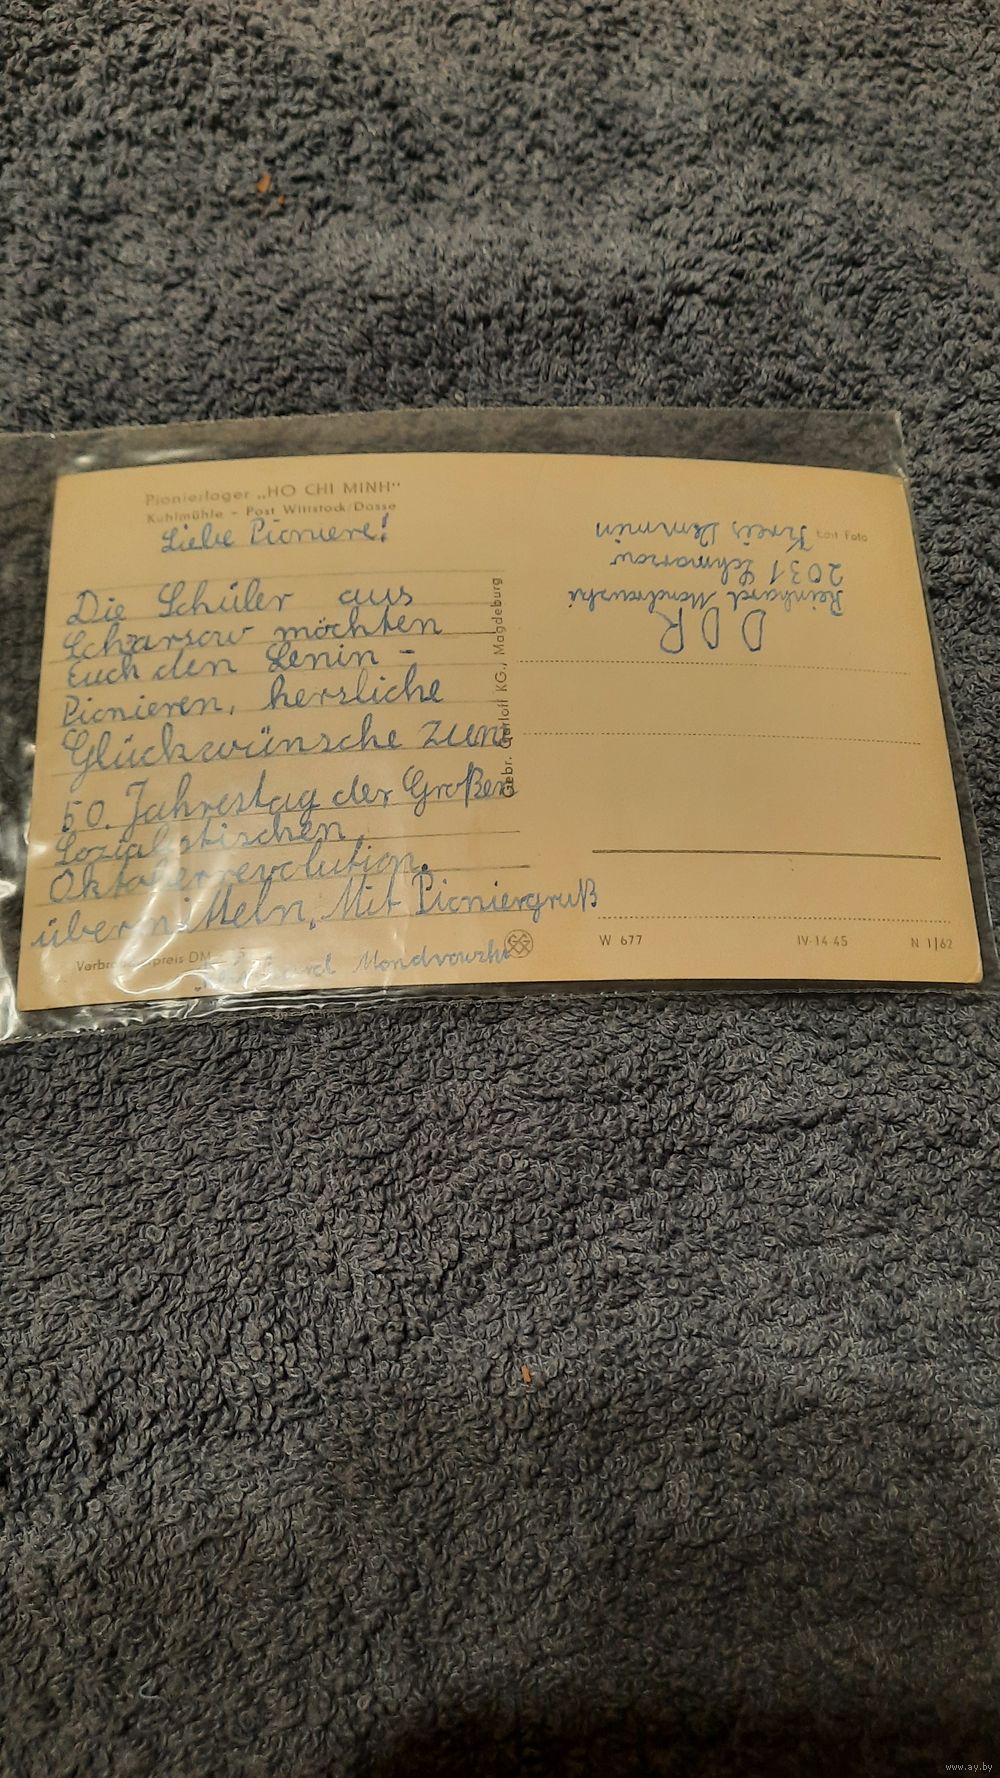 Pionierlager „HO CHI MINH“
Kuhlmühle - Post Wittstock/Dosse
Liebe Pioniere!
Die Schüler aus
Scharsow möchten
Euch den Lenin-
Pionieren, herzliche
Glückwünsche zum
50. Jahrestag der Großen
Sozialistischen
Oktoberrevolution
übermitteln. Mit Pioniergruß
Mondrowzki
Gebr. Garloff KG., Magdeburg
DDR
Reinhard Mondrowzki
2031 Schmarsow
Kreis Demmin
Foto
W 677
IV-14-45
N 1/62
www.ay.by